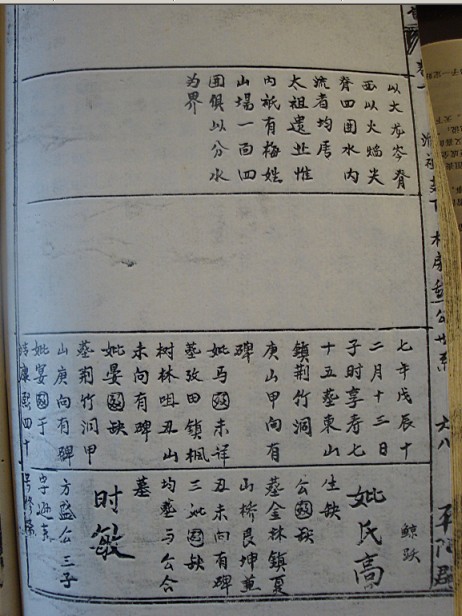 以大龙岑脊
西以火焰尖
脊四围水内
流者均属
太祖遗业惟
内祇有梅姓
山場一面四
围俱以分水
为界
七年戊辰十
二月十三日
子时享寿七
十五墓東山
鎮荆竹洞
庚山甲向有
碑
妣马未详
墓玫田鎮楓
树林咀丑山
未向有碑
妣晏缺
墓荆竹洞甲
山庚向有碑
妣宴于
康熙四十
鯨跃
妣氏高
生缺
公缺
墓金林鎮夏
山桥艮坤兼
丑未向有碑
三妣缺
均墓与公合
墓
时敏
方盛公三子
六八